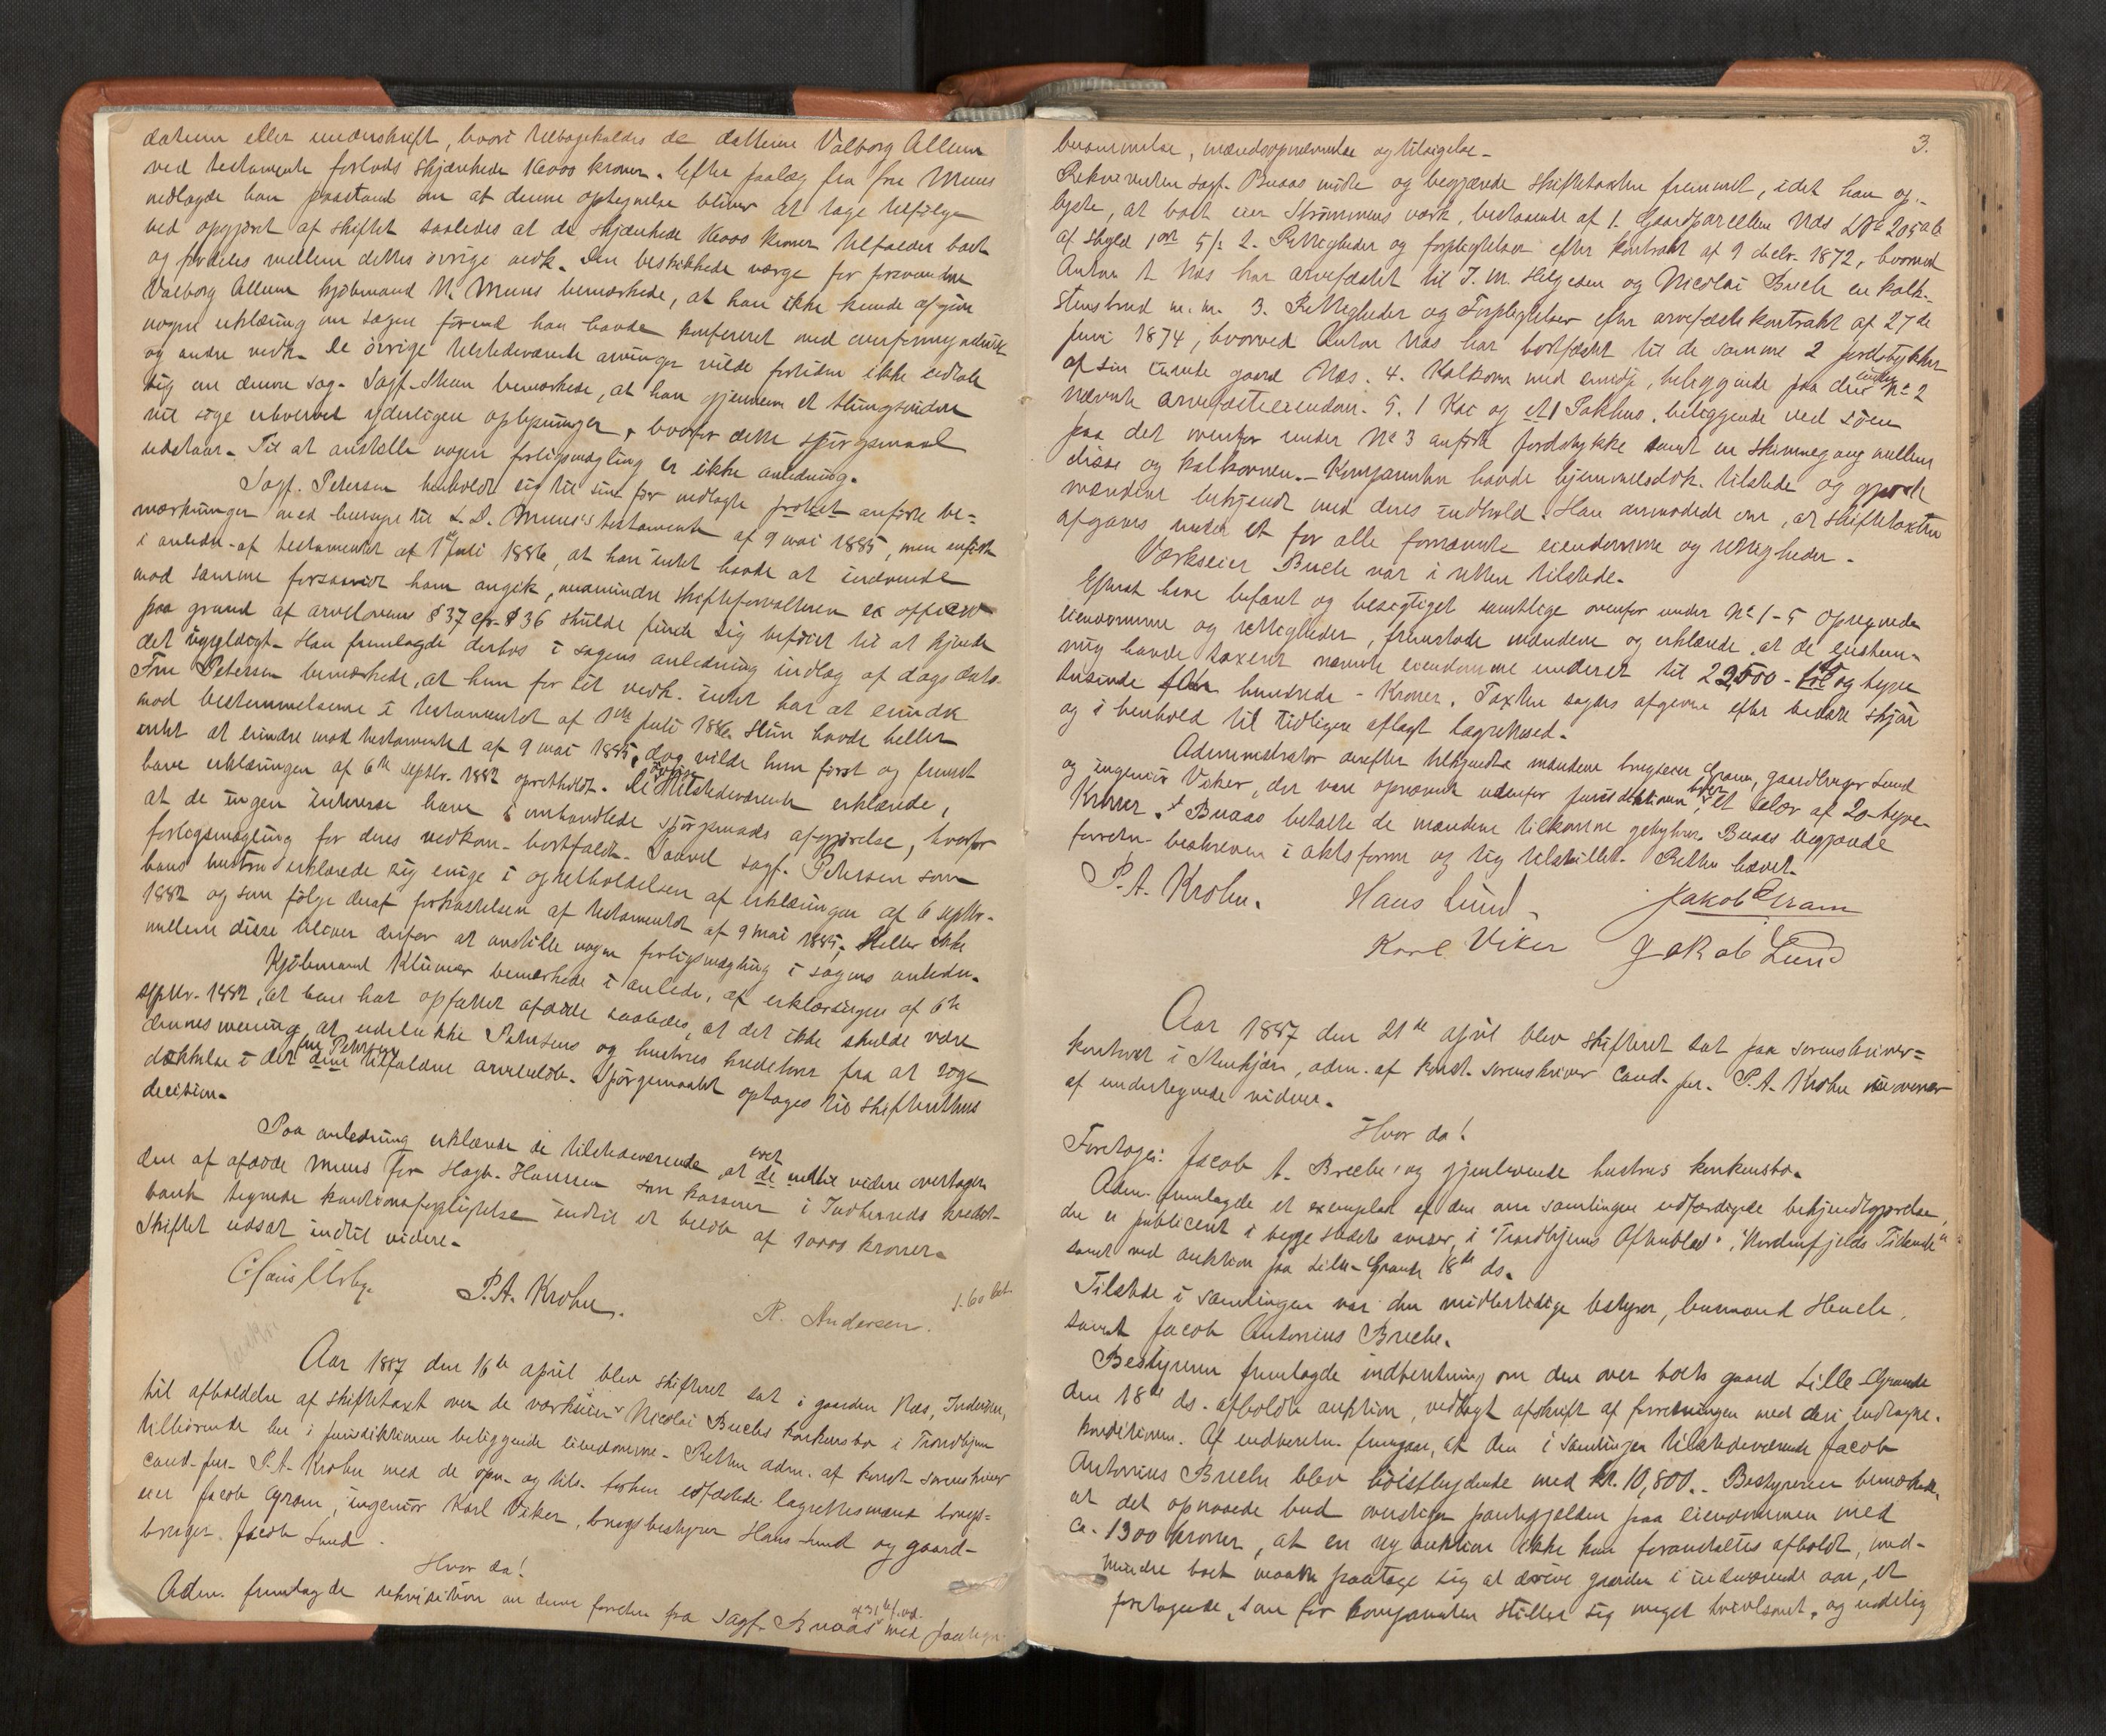 datum eller underskrift, hvori tilbagekaldes de datteren Valborg Allum
ved testamente forlods skjænkede 16000 kroner. Efter paalæg fra fru Muus
nedlagde han paastand om at denne optegnelse bliver at tage tilfølge
ved opgjøret af skiftet saaledes at de skjænkede 16000 kroner tilfalder boet
og fordeles mellem dettes øvrige vedk. Den beskikkede værge for
Valborg Allum kjøbmand N. Muus bemærkede, at han ikke kunde afgive
nogen erklæring om sagen førend han havde konfereret med overformynderiet
og andre vedk. De øvrige tilstedeværende arvinger vilde fortiden ikke udtale
sig om denne sag. Sagf. Steen bemærkede, at han gjennem et thingsvidne
vil søge erhvervet yderligere oplysninger, hvorfor dette spørgsmaal
udstaar. Til at anstille nogen forligsmægling er ikke anledning.
Sagf. Petersen henholdt sig til sine før nedlagte protest anførte be-
mærkninger med hensyn til L. D. Muus's testamente af 9 mai 1885, men anførte
i anledn. af testamentet af 1ste Juli 1886, at han intet havde at indvende
mod samme forsaavidt ham angik, medmindre skifteforvalteren ex officio
paa grund af arvelovens § 37 cfr. § 36 skulde finde sig beføiet til at kjende
det ugyldigt. Han fremlagde derhos i sagens anledning indlæg af dags dato.
Fru Petersen bemærkede, at hun for sit vedk. intet har at erindre
mod bestemmelserne i testamentet af 1ste Juli 1886. Hun havde heller
intet at erindre mod testamentet af 9 mai 1885, dog vilde hun først og fremst
have erklæringen af 6te septbr. 1882 opretholdt. De øvrige tilstedeværende erklærede,
at de ingen interesse have i omhandlede spørgsmaals afgjørelse, hvorfor
forligsmægling for deres vedkom. bortfaldt. Saavel sagf. Petersen som
hans hustru erklærede sig enige i opretholdelsen af erklæringen af 6 septbr.
1882 og som følge deraf forkastelsen af testamentet af 9 mai 1885, Heller ikke
mellem disse bliver derfor at anstille nogen forligsmægling i sagens anledn.
Kjøbmand Klüwer bemærkede i anledn. af erklæringen af 6te
septbr. 1882, at han har opfattet afdøde saaledes, at det ikke skulde være
dennes mening, at udelukke Petersens og hustrus kreditorer fra at søge
dækkelse i det fru Petersen dem tilfaldne arvelodd. Spørgsmaalet optages til skifterettens
decision.
Paa anledning erklærede de tilstedeværende, at de indtil videre overtager
den af afdøde Muus for Hagb. Hansen som kasserer i Indherreds kredit-
bank tegnede kautionsforpligtelse indtil et beløb af 10000 kroner.
Skiftet udsat indtil videre.
P. A. Krohn.
R. Andersen.
1.60 bet.
Aar 1887 den 16de april blev skifteret sat i gaarden Næs, Inderøen,
til afholdelse af skiftetaxt over de værkseier Nicolai Buchs konkursbo i Trondhjem
tilhørende her i jurisdiktionen beliggende eiendomme. Retten adm. af konst. sorenskriver
cand. jur. P. A. Krohn med de opn. og tils. forhen edfæstede lagrettesmænd brugs-
eier Jacob Gram, ingeniør Karl Viker, brugsbestyrer Hans Lund og gaard-
bruger Jacob Lund.
Hvor da!
Adm. fremlagde rekvisition om denne forretn. fra sagf. Buaas af 31/3 f. md. med paategn.
3.
berammelse, mændsopnævnelse og tilsigelse.
Rekvirenten sagf. Buaas mødte og begjærede skiftetaxten fremmet, idet han op-
lyste, at boet eier Strømmens værk, bestaaende af 1. Gaardparcellen Næs LNo 205 a b
af skyld 1 ort 5 ß. 2. Rettigheder og forpligtelser efter kontrakt af 9 decbr. 1872, hvorved
Anton A. Næs har arvefæstet til J. M. Helgesen og Nicolai Buch en kalk-
stensbrud m. m. 3. Rettigheder og Forpligtelser efter arvefæstekontrakt af 27de
Juni 1874, hvorved Anton Næs har bortfæstet til de samme 2 jordstykker
af sin eiende gaard Næs. 4. Kalkovn med smidje, beliggende paa den under No 2
nævnte arvefæsteeiendom. 5. 1 Kai og et 1 Pakhus, beliggende ved søen
paa det ovenfor under No 3 anførte jordstykke samt en skinnegang mellem
disse og kalkovnen. Komparenten havde hjemmelsdok. tilstede og gjorde
mændene bekjendt med deres indhold. Han anmodede om, at skiftetaxten
afgaves under et for alle fornævnte eiendomme og rettigheder.
Værkseier Buch var i retten tilstede.
Efterat have befaret og besigtiget samtlige ovenfor under No 1-5 opregnede
eiendomme og rettigheder, fremstode mændene og erklærede, at de eenstem-
mig havde taxeret nævnte eiendomme underet til 22,500 - to og tyve
tusinde fem hundrede - Kroner. Taxten sagdes afgiven efter bedste skjøn
og i henhold til tidligere aflagt lagretteed.
Administrator derefter tilkjendte mændene brugseier Gram, gaardbruger Lund
og ingeniør Viker, der vare opnævnt udenfor jurisdiktionen, hver et salær af 20-tyve-
Kroner. Buaas betalte de mændene tilkomne gebyhrer. Buaas begjærede
forretn. beskreven i aktsform og sig tilstillet. Retten hævet.
P. A. Krohn. Hans Lund Jakob Gram
Karl Viker Jakob Lund
Aar 1887 den 21de april blev skifteret sat paa sorenskriver-
kontoret i Stenkjær, adm. af konst. sorenskriver cand. jur. P. A. Krohn i overvær
af undertegnede vidner.
Hvor da!
Foretoges: Jacob A. Brechs og gjenlevende hustrus konkursbo.
Adm. fremlagde et exemplar af den om samlingen udfærdigede bekjendtgjørelse,
der er publiceret i begge stedets aviser, i "Trondhjems Aftenblad", "Nordenfjelds Tidende"
samt ved auktion paa Lille-Grande 18de ds.
Tilstede i samlingen var den midlertidige bestyrer, lensmand Hench,
samt Jacob Antonius Brech.
Bestyreren fremlagde indberetning om den over boets gaard Lille Grande
den 18de ds. afholdte auktion, vedlagt afskrift af forretningen med deri indtagne
konditioner. Af indberetn. fremgaar, at den i samlingen tilstedeværende Jacob
Antonius Brech blev høistbydende med kr. 10,800. Bestyreren bemærkede,
at det opnaaede bud overstiger pantegjelden paa eiendommen med
ca. 1300 kroner, at en ny auktion ikke kan foranstaltes afholdt, med-
mindre boet maatte paatage sig at drive gaarden i indeværende aar, et
foretagende, som for komparenten stiller sig meget tvivlsomt, og endelig